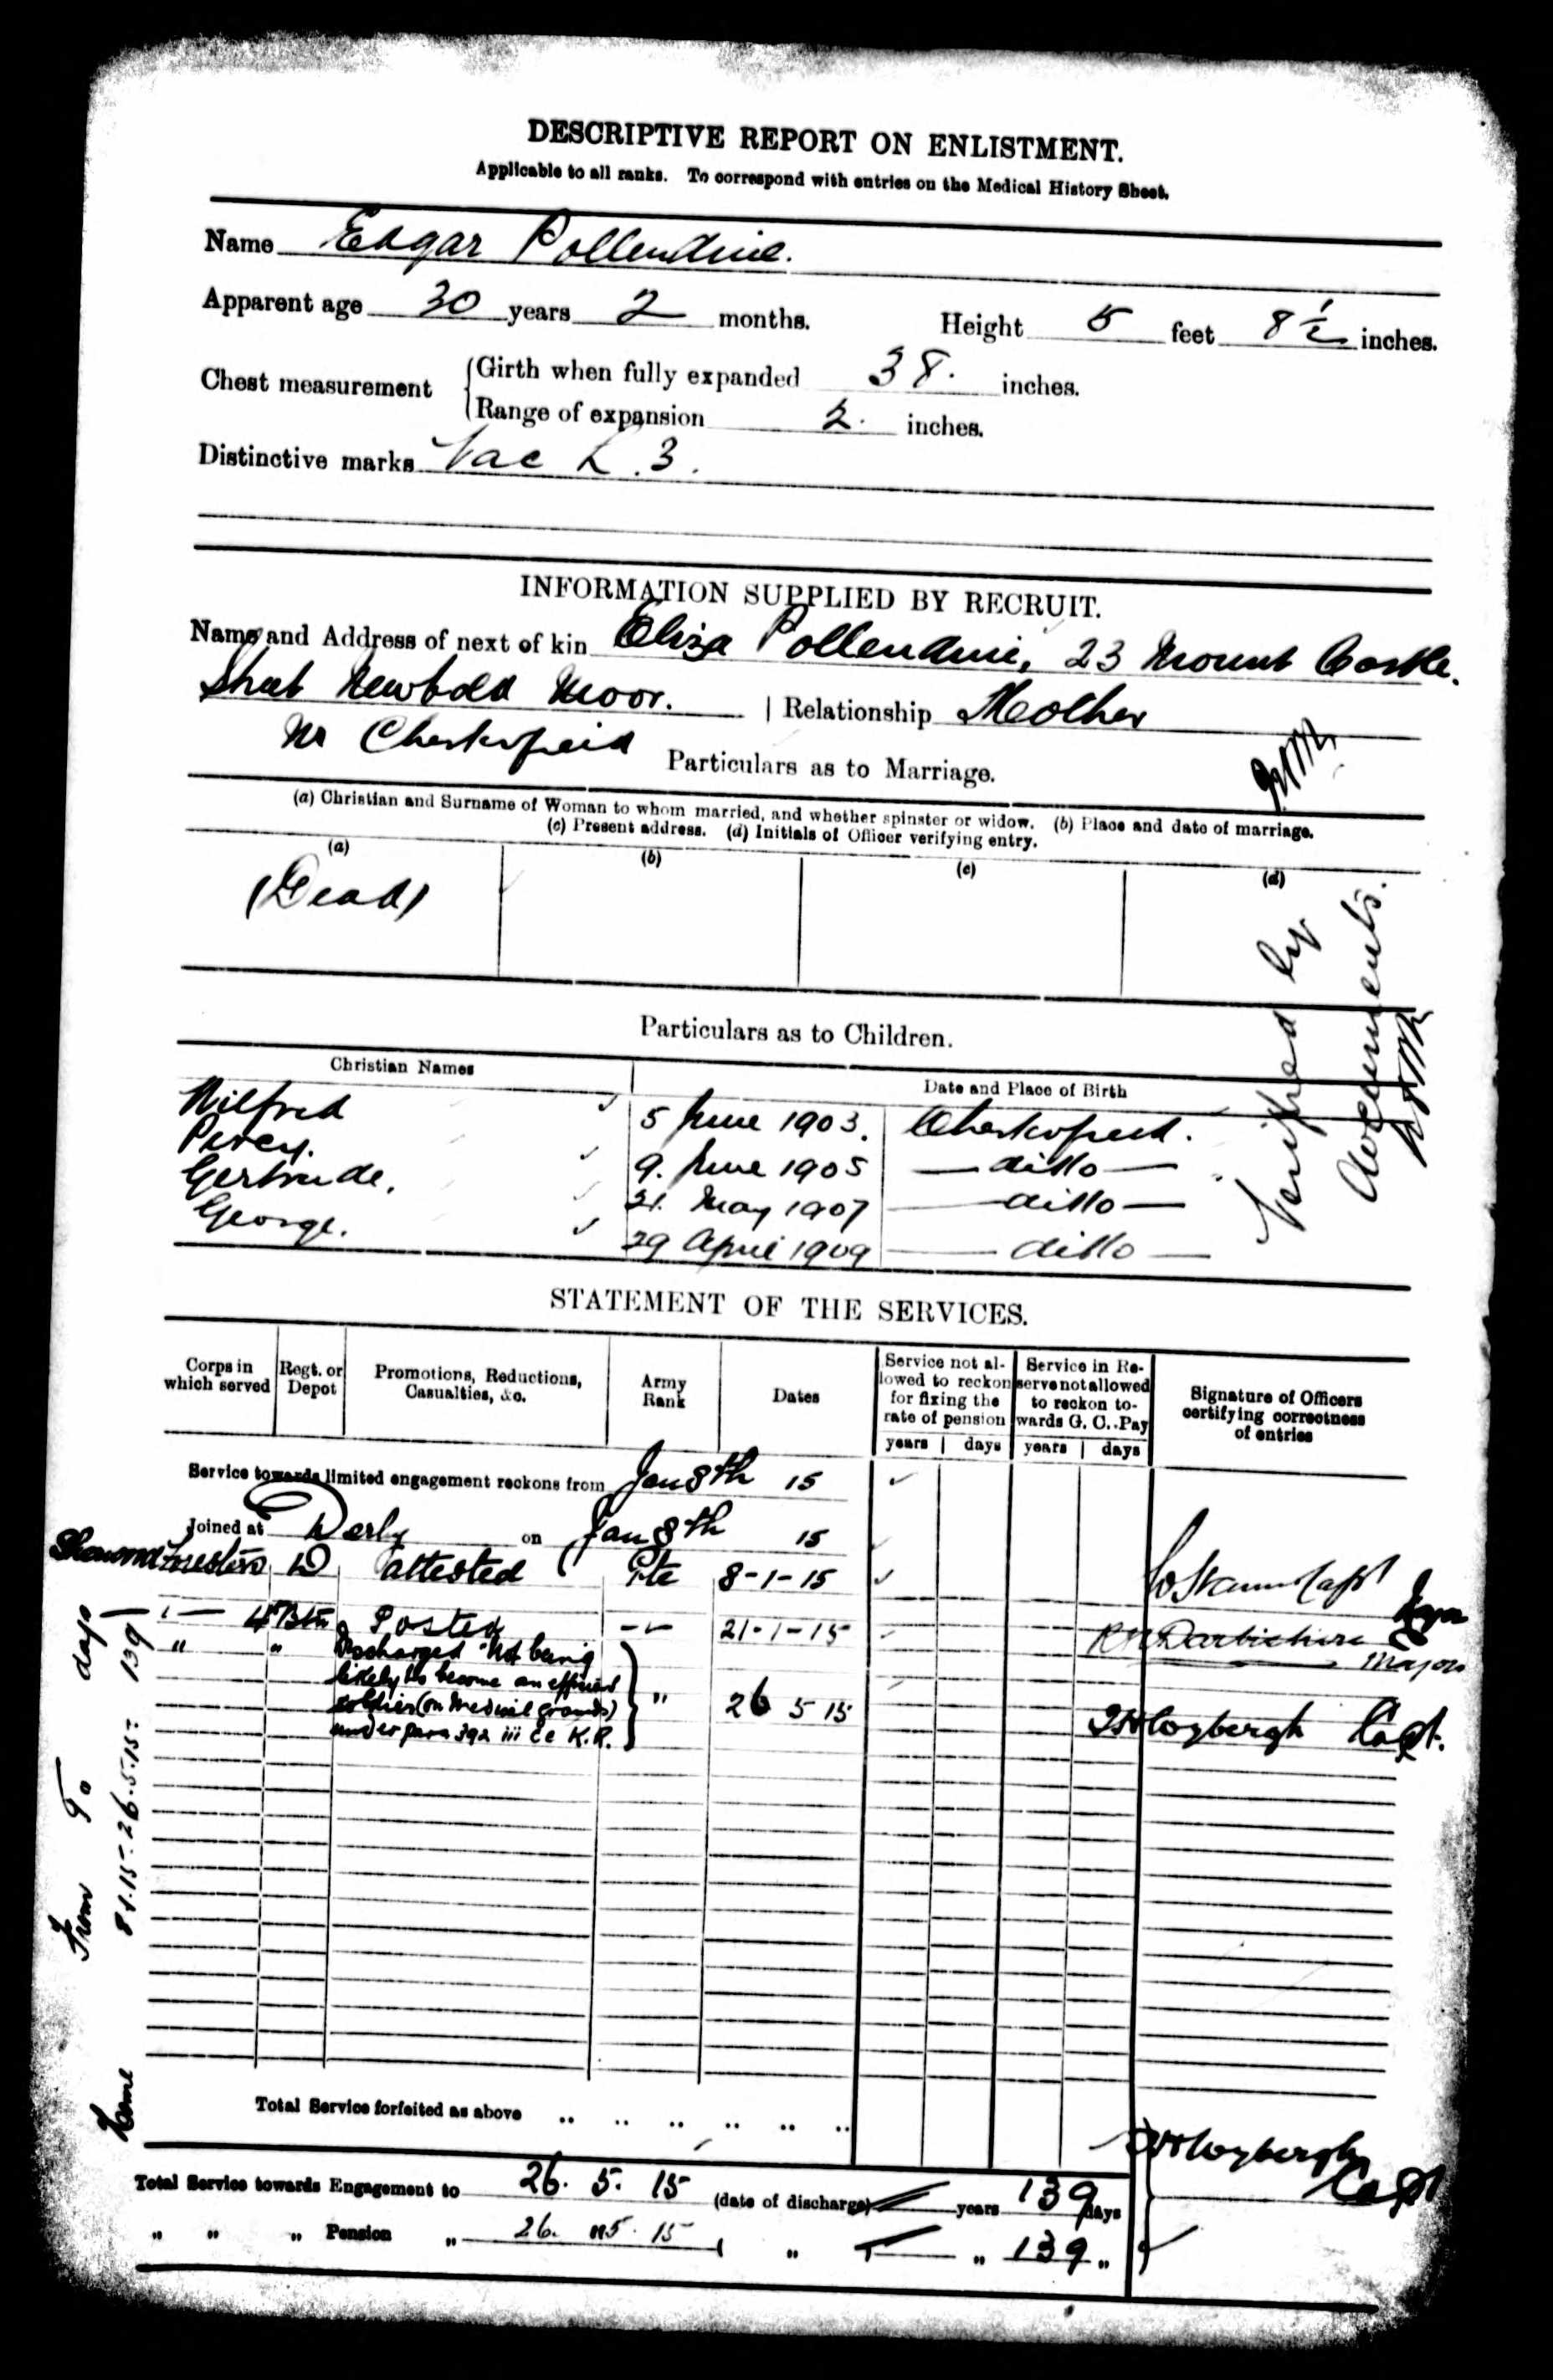 DESCRIPTIVE REPORT ON ENLISTMENT.
Applicable to all ranks. To correspond with entries on the Medical History Sheet.
Name Edgar Pollendine.
Apparent age 30 years 2 months. Height 5 feet 8 1/2 inches.
Chest measurement
Girth when fully expanded 38. inches.
Range of expansion 2. inches.
Distinctive marks Vac L. 3.
INFORMATION SUPPLIED BY RECRUIT.
Name and Address of next of kin Eliza Pollendine, 23 Mount Castle.
Street Newbold Moor. | Relationship Mother
Nr Chesterfield
Particulars as to Marriage.
(a) Christian and Surname of Woman to whom married, and whether spinster or widow. (b) Place and date of marriage.
(c) Present address. (d) Initials of Officer verifying entry.
(a) (b) (c) (d)
(Dead)
Verified by
documents.
Particulars as to Children.
Christian Names Date and Place of Birth
Wilfred 5 June 1903. Chesterfield.
Percy. 9. June 1905 — ditto —
Gertrude. 21. May 1907 — ditto —
George. 29 April 1909 — ditto —
STATEMENT OF THE SERVICES.
Corps in which served
Regt. or Depot
Promotions, Reductions, Casualties, &c.
Army Rank
Dates
Service not allowed to reckon for fixing the rate of pension
Service in Reserve not allowed to reckon towards G. C. Pay
Signature of Officers certifying correctness of entries
years | days years | days
Service towards limited engagement reckons from Jan 8th 15
Joined at Derby on Jan 8th 15
Foresters D attested Pte 8-1-15 Capt
4 Btn Posted 21-1-15 Darbishire
Major
" " Discharged "Not being
likely to become an efficient
soldier (on medical grounds) " 26 5 15
under para 392 iii cc K.R.
Capt.
Home From To days
8-1-15 - 26-5-15 = 139
Total Service forfeited as above .. .. .. .. .. ..
Capt
Total Service towards Engagement to 26. 5. 15 (date of discharge) — years 139 days
" " " Pension " 26. 5. 15 ( " — " 139 "